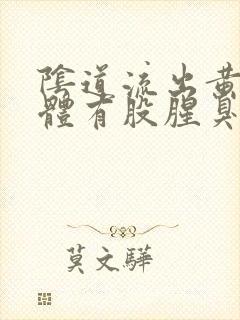 陰道流出黃
體有股腥臭
莫文驊